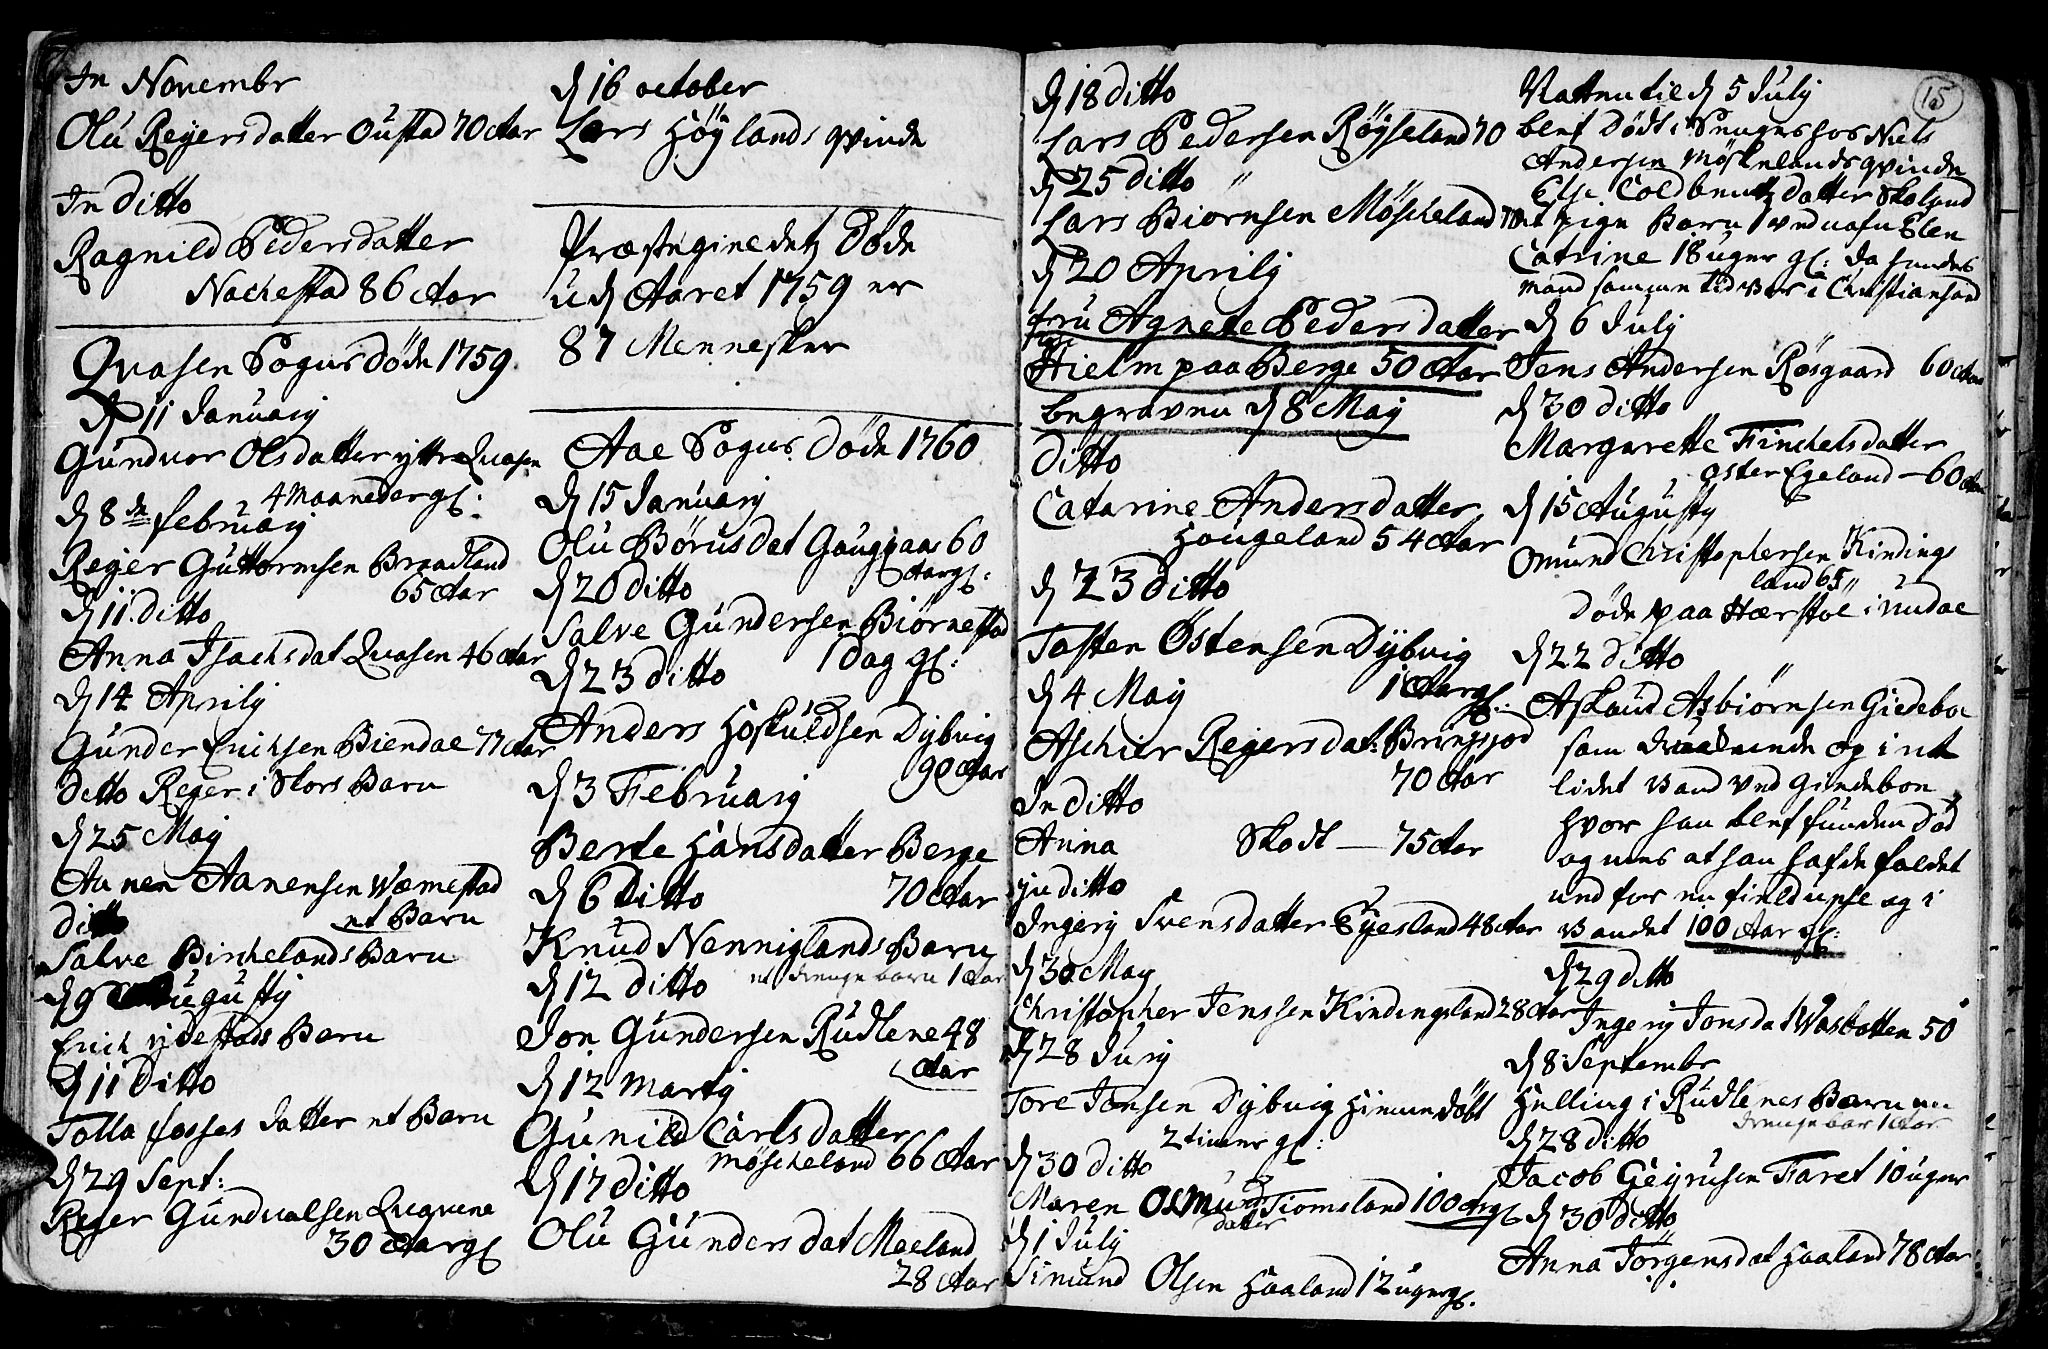 In Novembr
Olu Reyersdatter Oustad 70 Aar
In ditto
Ragnild Pedersdatter
Nackestad 86 Aar
Qvasen Sogns Døde 1759
d 11 Januarij
Gunduor Olsdatter yttre Qvasen
4 Maaneder gl:
d 8de februarij
Reyer Guttormsen Braadland
65 Aar
d 11 ditto
Anna Isachsdat Qvasen 46 Aar
d 14 Aprilij
Gunder Erichsen Biendae 77 Aar
ditto Reyer i Skors Barn
d 25 Maij
Aanen Aanensen Wæmestad
et Barn
ditto
Salve Birkelands Barn
d 9 Augustij
Erich ydestads Barn
d 11 ditto
Tolla fosses datter et Barn
d 29 Sept:
Reyer Gundvalsen Qvavene
30 Aar gl
d 16 october
Lars Høylands qvinde
Præstegieldetz Døde
ud Aaret 1759 er
87 Mennesker
Aae Sogns Døde 1760
d 15 Januarij
Olu Børusdat Gougaas 60
Aar gl:
d 20 ditto
Salve Gundersen Biørnestad
1 dag gl:
d 23 ditto
Anders Hoskuldsen Dybvig
90 Aar
d 3 Februarij
Berte Hansdatter Berge
70 Aar
d 6 ditto
Knud Nenniglands Barn
et drenge barn 1 Aar
d 12 ditto
Jon Gundersen Rudlene 48
Aar
d 12 Martij
Gunild Carlsdatter
Møscheland 66 Aar
d 17 ditto
Olu Gundersdat Meeland
28 Aar
d 18 ditto
Lars Pedersen Røyseland 70
d 25 ditto
Lars Biørnsen Møscheland 70
d 20 Aprilij
fru Agnete Pedersdatter
Hielm paa Berge 50 Aar
begraven d 8 Maij
ditto
Catarine Andersdatter
Hougeland 54 Aar
d 23 ditto
Tosten Østensen Dybvig
1 Aar gl:
d 4 Maij
Aschier Reyersdat: Bringsjord
70 Aar
In ditto
Anna Skodt — 75 Aar
in ditto
Ingerij Svensdatter Eyesland 48 Aar
d 30 Maij
Christopher Jenssen Kindingsland 28 Aar
d 28 Junij
Tore Jonsen Dybvig hiemedøbt
2 timer gl:
d 30 ditto
Maren Osmunds Tiomsland 100 Aar gl
datter
d 1 Julij
Simund Olsen Haaland 12 uger gl.
15
Natten til d 5 Julij
blef Dødt i Sengen hos Niels
Andersen Møskelands qvinde
Else Coldbentz datter Skolsud
et pige Barn ved nafn Elen
Catrine 18 uger gl: da hendes
mand samme tid var i Christiansand
d 6 Julij
Jens Andersen Røsgaard 60 Aar
d 30 ditto
Margarette Finckelsdatter
oster Egeland — 60 Aar
d 15 Augustij
Omund Christophersen Kindings
land 65
døde paa Hærstøl i
d 22 ditto
Aslaud Asbiørnsen Giedeboe
som og i et
lidet vand ved Giedeboe
hvor han blef funden død
og at han hafde faldet
ud for en field og i
vandet 100 Aar gl:
d 29 ditto
Ingerij Jonsdat Wasbotten 50
d 8 Septembr
Helling i Rudlenes Barn
drenge bar 1 Aar
d 28 ditto
Jacob Geyrusen Faret 10 uger
d 30 ditto
Anna Jørgensdat Haaland 78 Aar